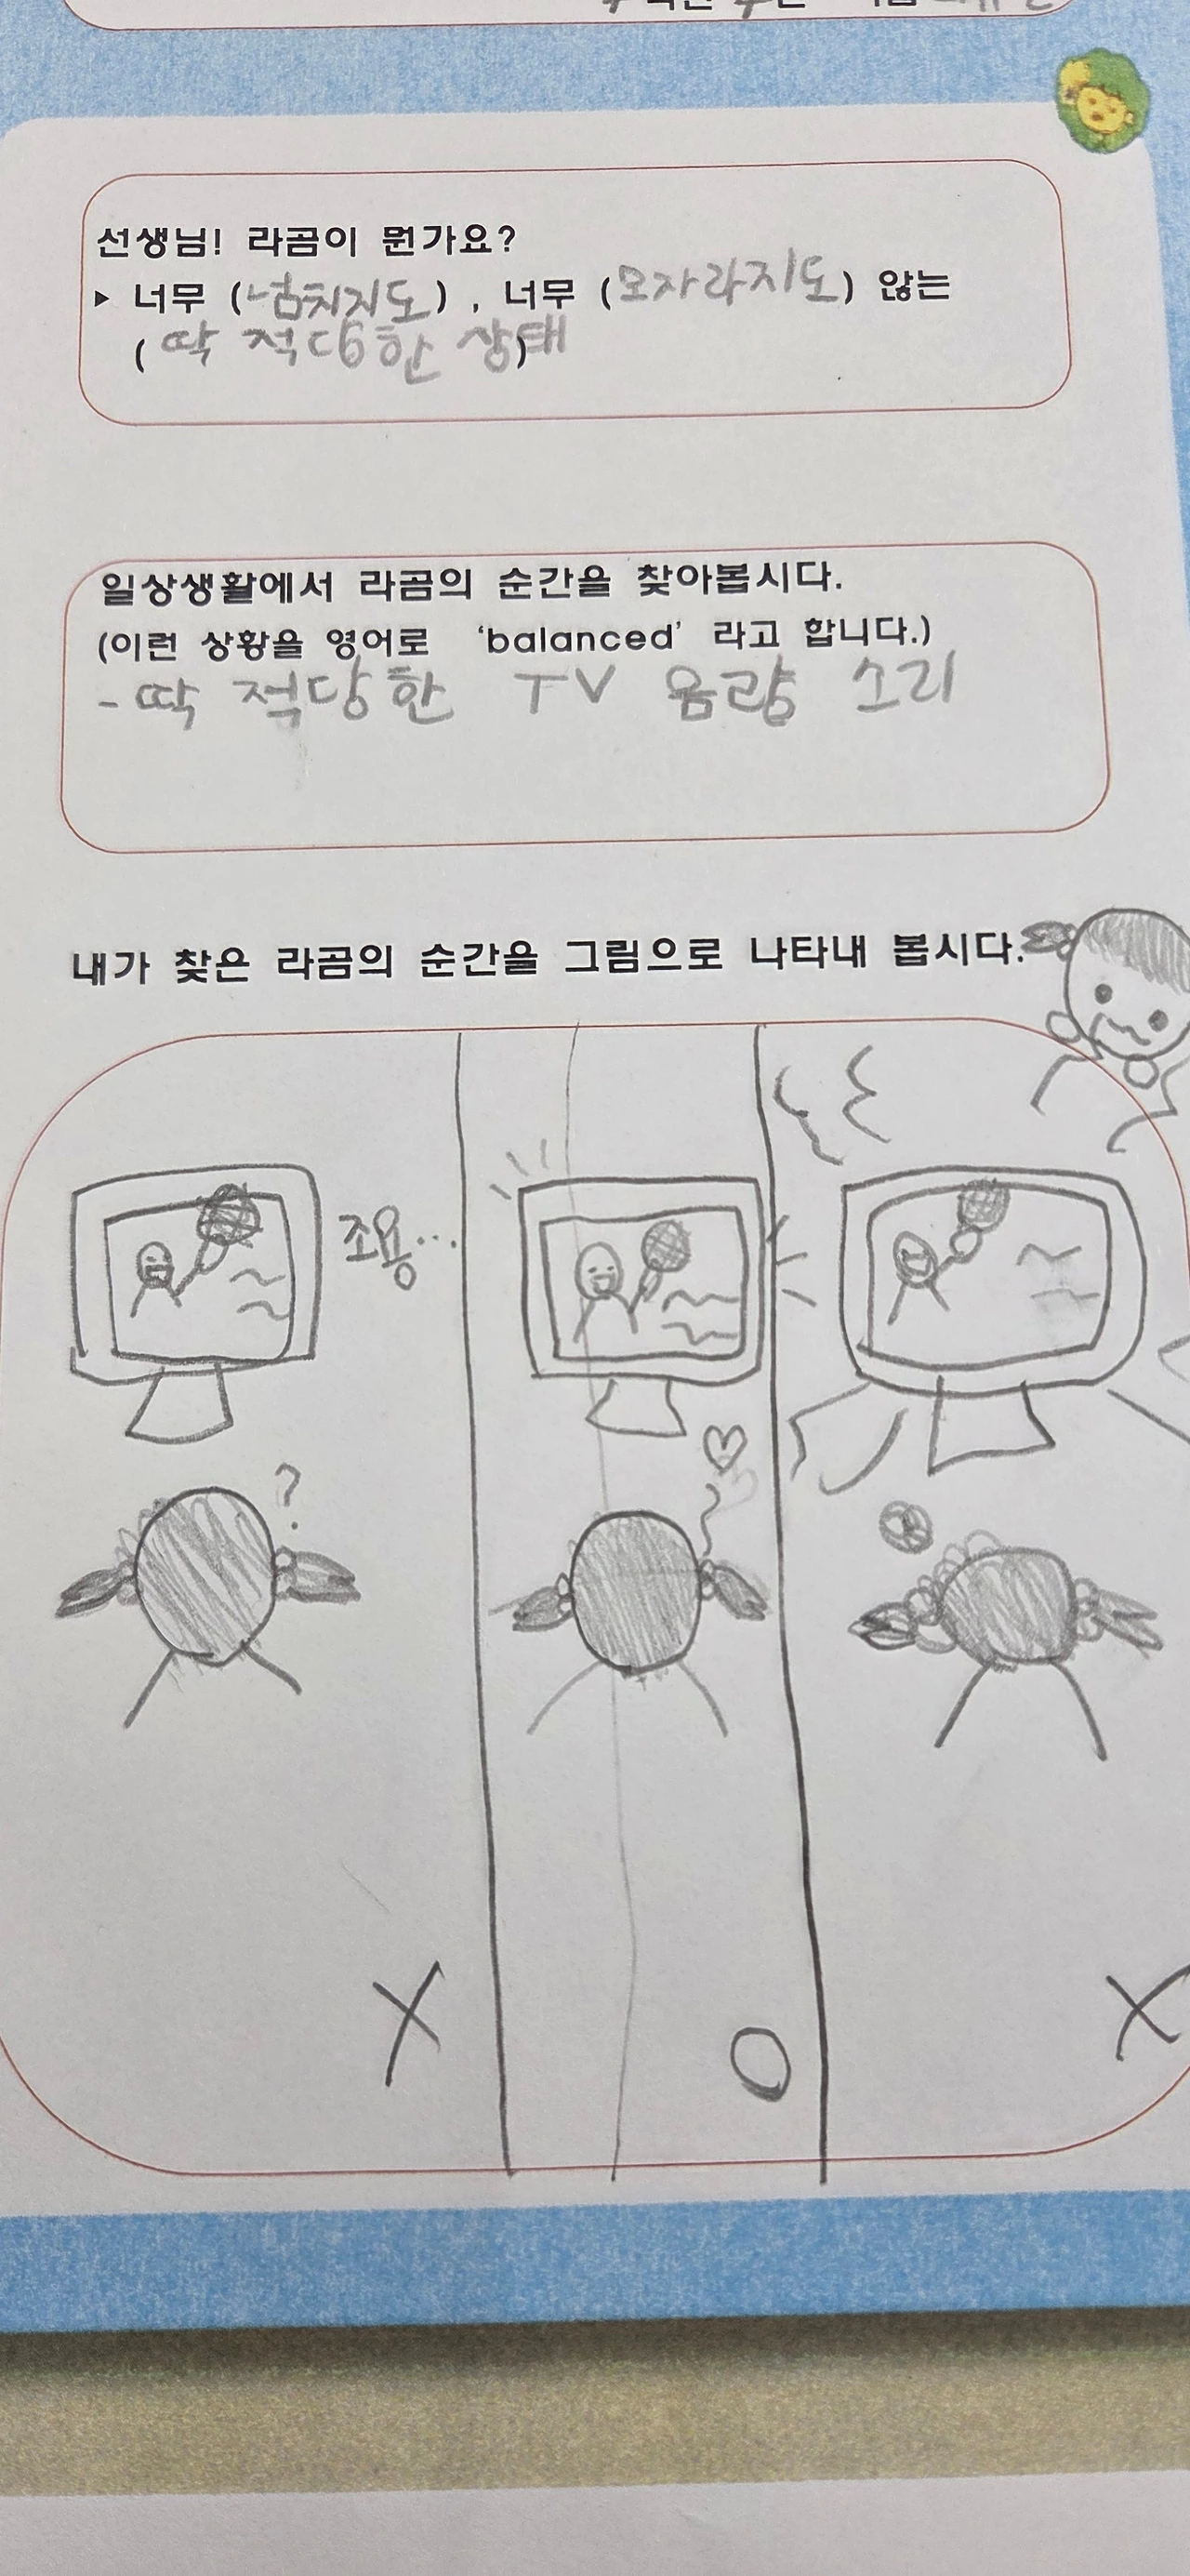 선생님! 라곰이 뭔가요?
▸ 너무 (넘치지도) , 너무 (모자라지도) 않는
( 딱 적당한 상태)
일상생활에서 라곰의 순간을 찾아봅시다.
(이런 상황을 영어로 ‘balanced’ 라고 합니다.)
- 딱 적당한 TV 음량 소리
내가 찾은 라곰의 순간을 그림으로 나타내 봅시다.
조용...
?
X
O
X